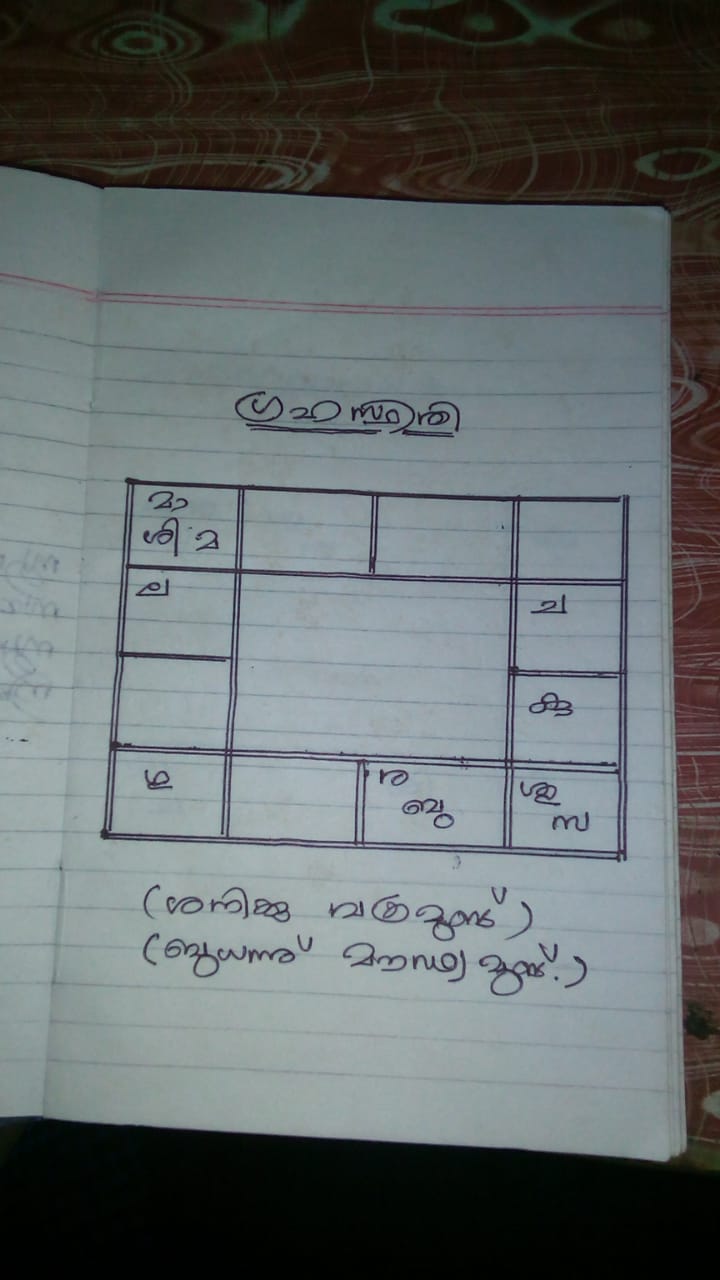 ഗ്രഹസ്ഥിതി
മാ
ശി മ
ല
ച
കു
ഗു
ര
ബു
ശു
സ
(ശനിക്കു വക്രമുണ്ട്)
(ബുധന് മൗഢ്യമുണ്ട്.)